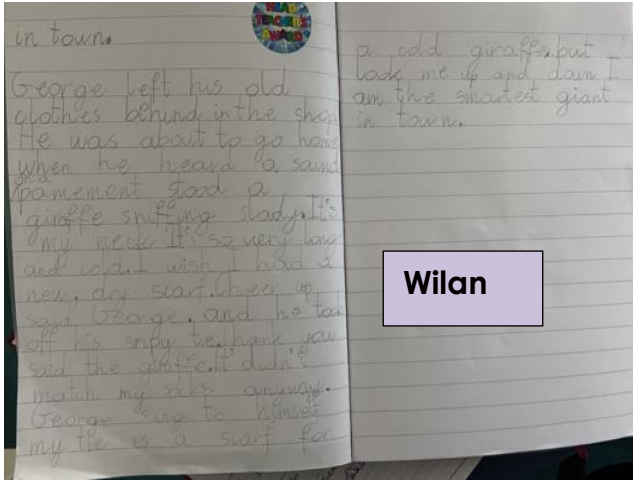 in town.
HEAD
TEACHER'S
AWARD
George left his old
clothes behind in the shop
He was about to go home
when he heard a sound
pamement stood a
giraffe sniffing slady. It's
my neck It's so very long
and cold. I wish I had a
new, dry scarf. Cheer up
said George. and he took
off his tie. hank you
said the giraffe. It didn't
match my anyway.
George sing to himself
my tie is a scarf for
a cold giraffe. but
look me up and down I
am the smartest giant
in town.
Wilan